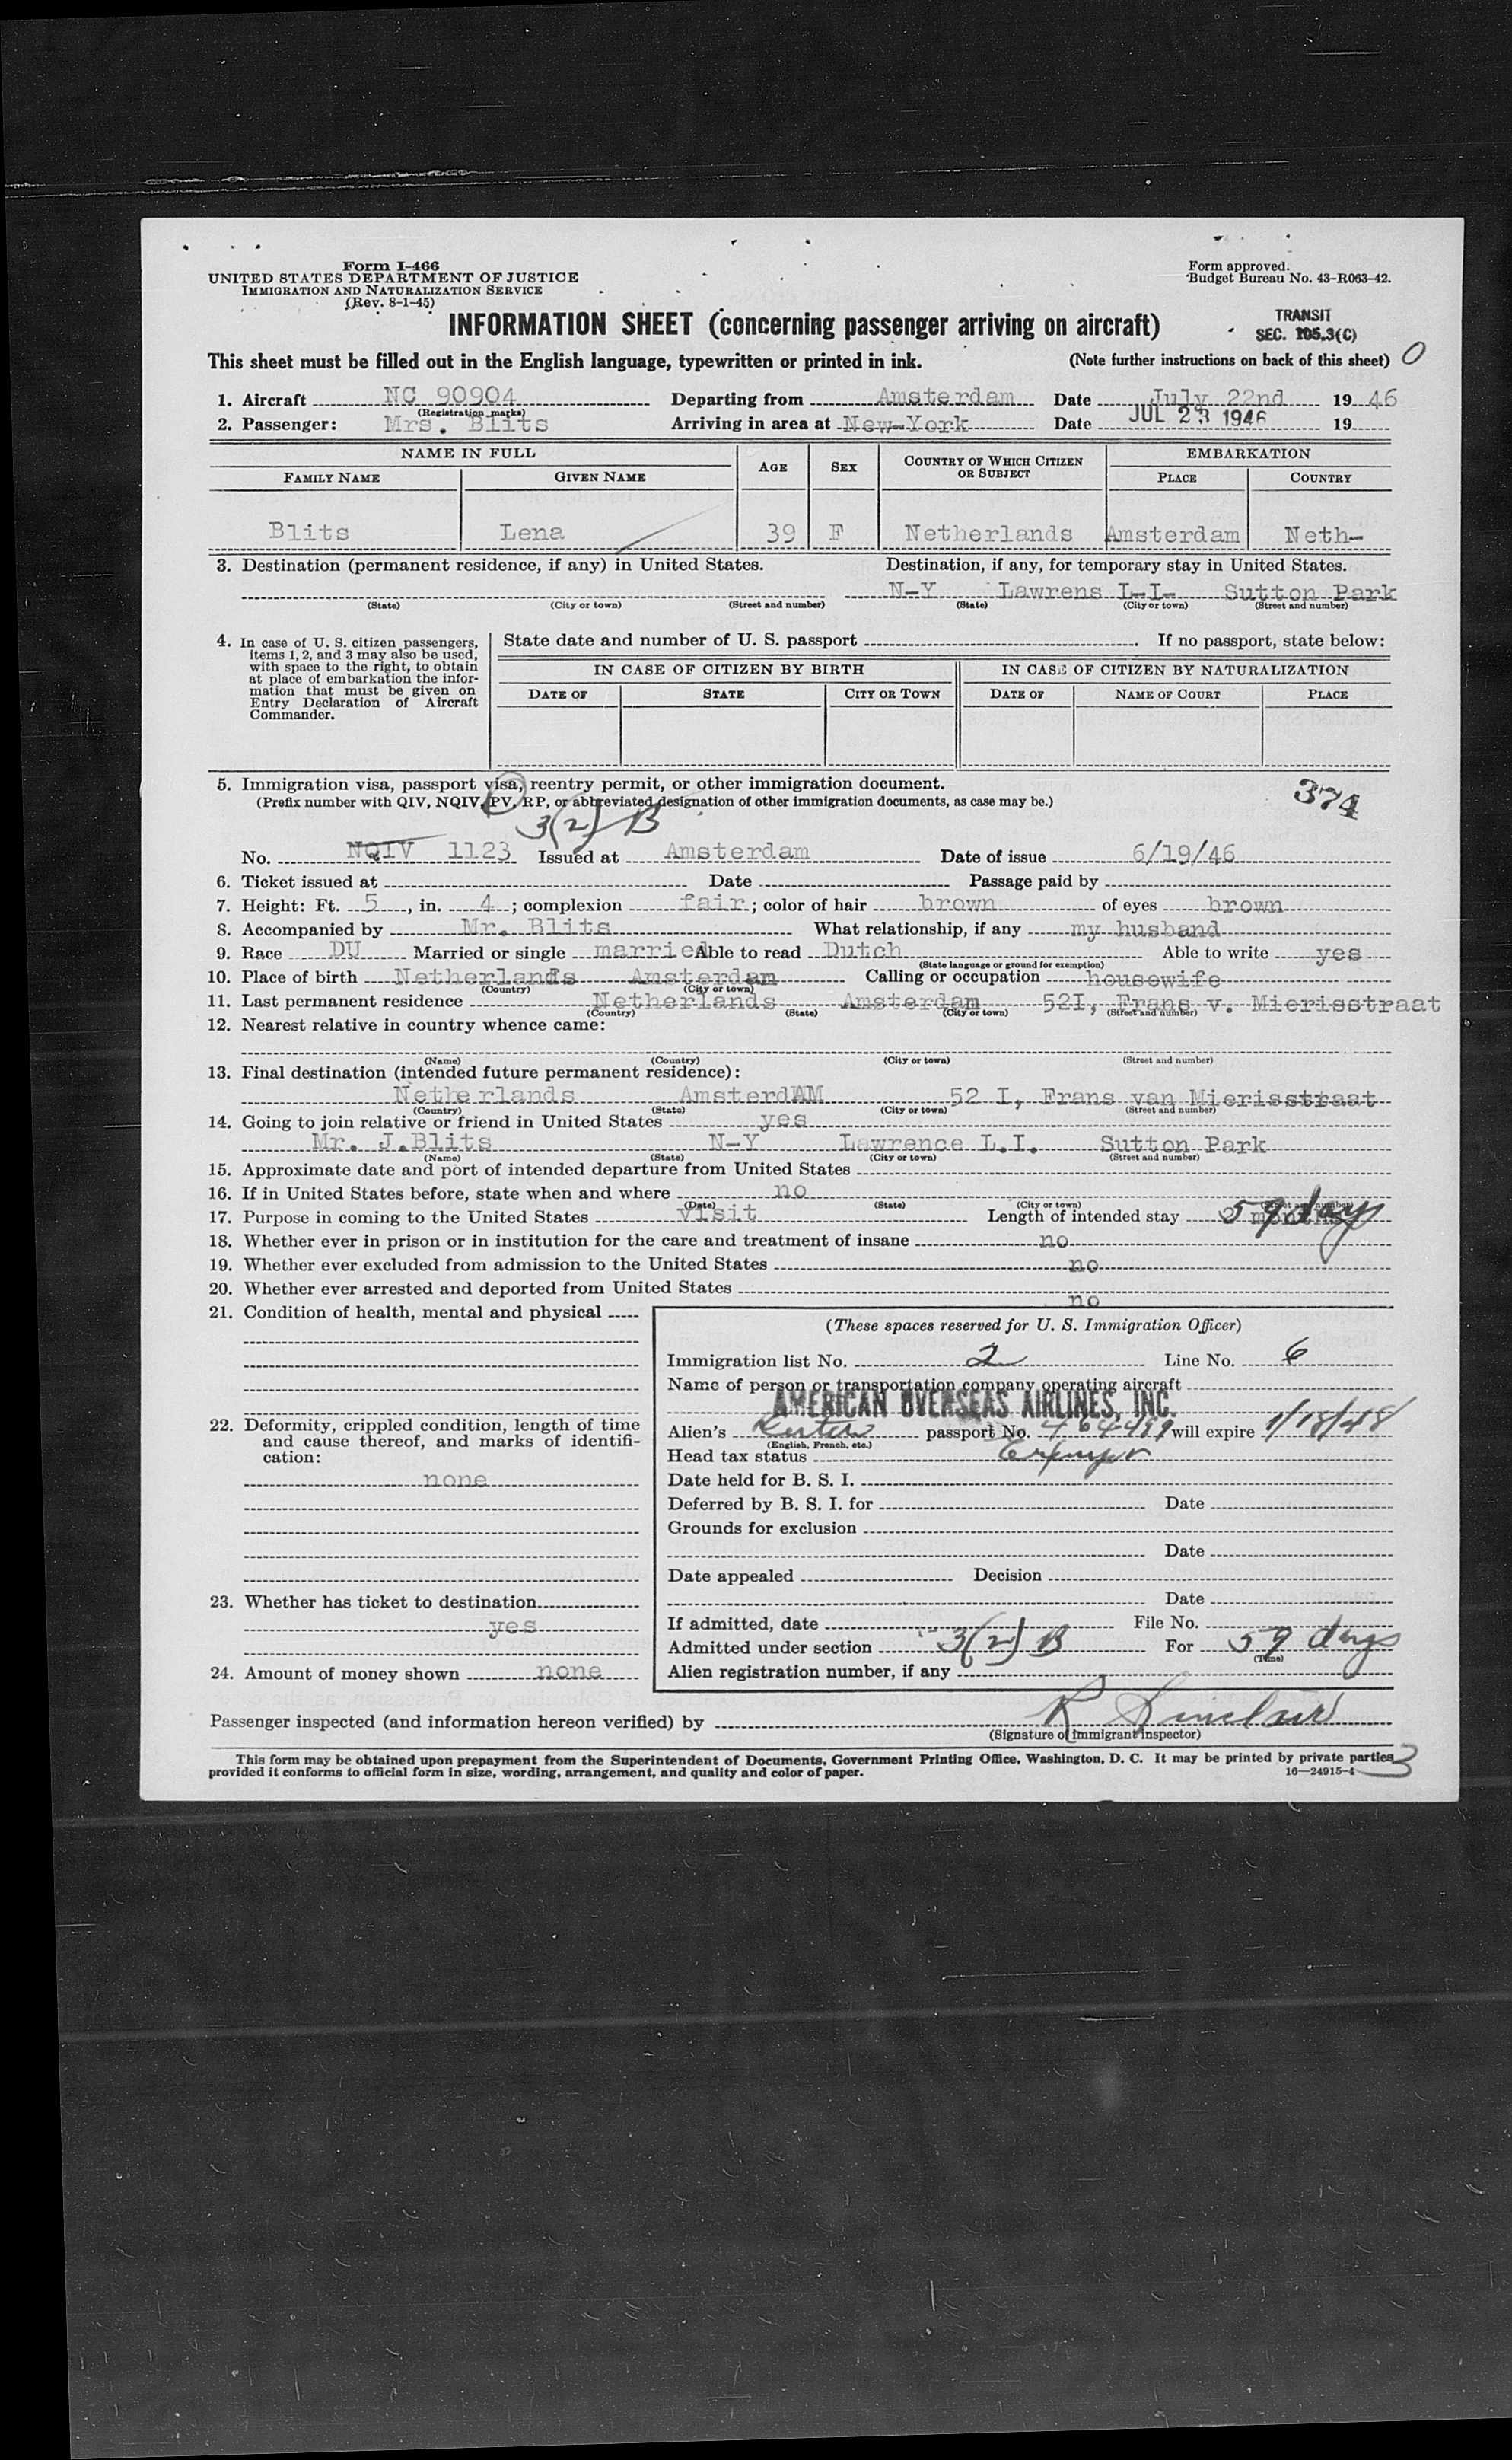 Form I-466
UNITED STATES DEPARTMENT OF JUSTICE
IMMIGRATION AND NATURALIZATION SERVICE
(Rev. 8-1-45)
Form approved.
Budget Bureau No. 43-R063-42.
INFORMATION SHEET (concerning passenger arriving on aircraft)
TRANSIT
SEC. 105.3(C)
This sheet must be filled out in the English language, typewritten or printed in ink. (Note further instructions on back of this sheet) 0
1. Aircraft NC 90904 Departing from Amsterdam Date July 22nd 19 46
(Registration marks)
2. Passenger: Mrs. Blits Arriving in area at New-York Date JUL 23 1946 19
NAME IN FULL AGE SEX COUNTRY OF WHICH CITIZEN OR SUBJECT EMBARKATION
FAMILY NAME GIVEN NAME PLACE COUNTRY
Blits Lena 39 F Netherlands Amsterdam Neth-
3. Destination (permanent residence, if any) in United States. Destination, if any, for temporary stay in United States.
N-Y Lawrens L-I- Sutton Park
(State) (City or town) (Street and number) (State) (City or town) (Street and number)
4. In case of U. S. citizen passengers, items 1, 2, and 3 may also be used, with space to the right, to obtain at place of embarkation the information that must be given on Entry Declaration of Aircraft Commander.
State date and number of U. S. passport If no passport, state below:
IN CASE OF CITIZEN BY BIRTH IN CASE OF CITIZEN BY NATURALIZATION
DATE OF STATE CITY OR TOWN DATE OF NAME OF COURT PLACE
5. Immigration visa, passport visa, reentry permit, or other immigration document.
(Prefix number with QIV, NQIV, PV, RP, or abbreviated designation of other immigration documents, as case may be.)
374
3(2) B
No. NQIV 1123 Issued at Amsterdam Date of issue 6/19/46
6. Ticket issued at Date Passage paid by
7. Height: Ft. 5, in. 4; complexion fair; color of hair brown of eyes brown
8. Accompanied by Mr. Blits What relationship, if any my husband
9. Race DU Married or single married Able to read Dutch Able to write yes
(State language or ground for exemption)
10. Place of birth Netherlands Amsterdam Calling or occupation housewife
(Country) (City or town)
11. Last permanent residence Netherlands Amsterdam 52I, Frans v. Mierisstraat
(Country) (State) (City or town) (Street and number)
12. Nearest relative in country whence came:
(Name) (Country) (City or town) (Street and number)
13. Final destination (intended future permanent residence):
Netherlands AmsterdAM 52 I, Frans van Mierisstraat
(Country) (State) (City or town) (Street and number)
14. Going to join relative or friend in United States yes
Mr. J.Blits N-Y Lawrence L.I. Sutton Park
(Name) (State) (City or town) (Street and number)
15. Approximate date and port of intended departure from United States
16. If in United States before, state when and where no
(Date) (State) (City or town) (Street and number)
17. Purpose in coming to the United States visit Length of intended stay 2 months 59 days
18. Whether ever in prison or in institution for the care and treatment of insane no
19. Whether ever excluded from admission to the United States no
20. Whether ever arrested and deported from United States no
21. Condition of health, mental and physical
22. Deformity, crippled condition, length of time and cause thereof, and marks of identification:
none
23. Whether has ticket to destination
yes
24. Amount of money shown none
(These spaces reserved for U. S. Immigration Officer)
Immigration list No. 2 Line No. 6
Name of person or transportation company operating aircraft
AMERICAN OVERSEAS AIRLINES, INC.
Alien's passport No. will expire 1/18/48
(English, French, etc.)
Head tax status Exempt
Date held for B. S. I.
Deferred by B. S. I. for Date
Grounds for exclusion
Date
Date appealed Decision
Date
If admitted, date File No.
Admitted under section 3(2) B For 59 days
(Time)
Alien registration number, if any
Passenger inspected (and information hereon verified) by R Sinclair
(Signature of Immigrant Inspector)
This form may be obtained upon prepayment from the Superintendent of Documents, Government Printing Office, Washington, D. C. It may be printed by private parties
provided it conforms to official form in size, wording, arrangement, and quality and color of paper. 16—24915-4 3